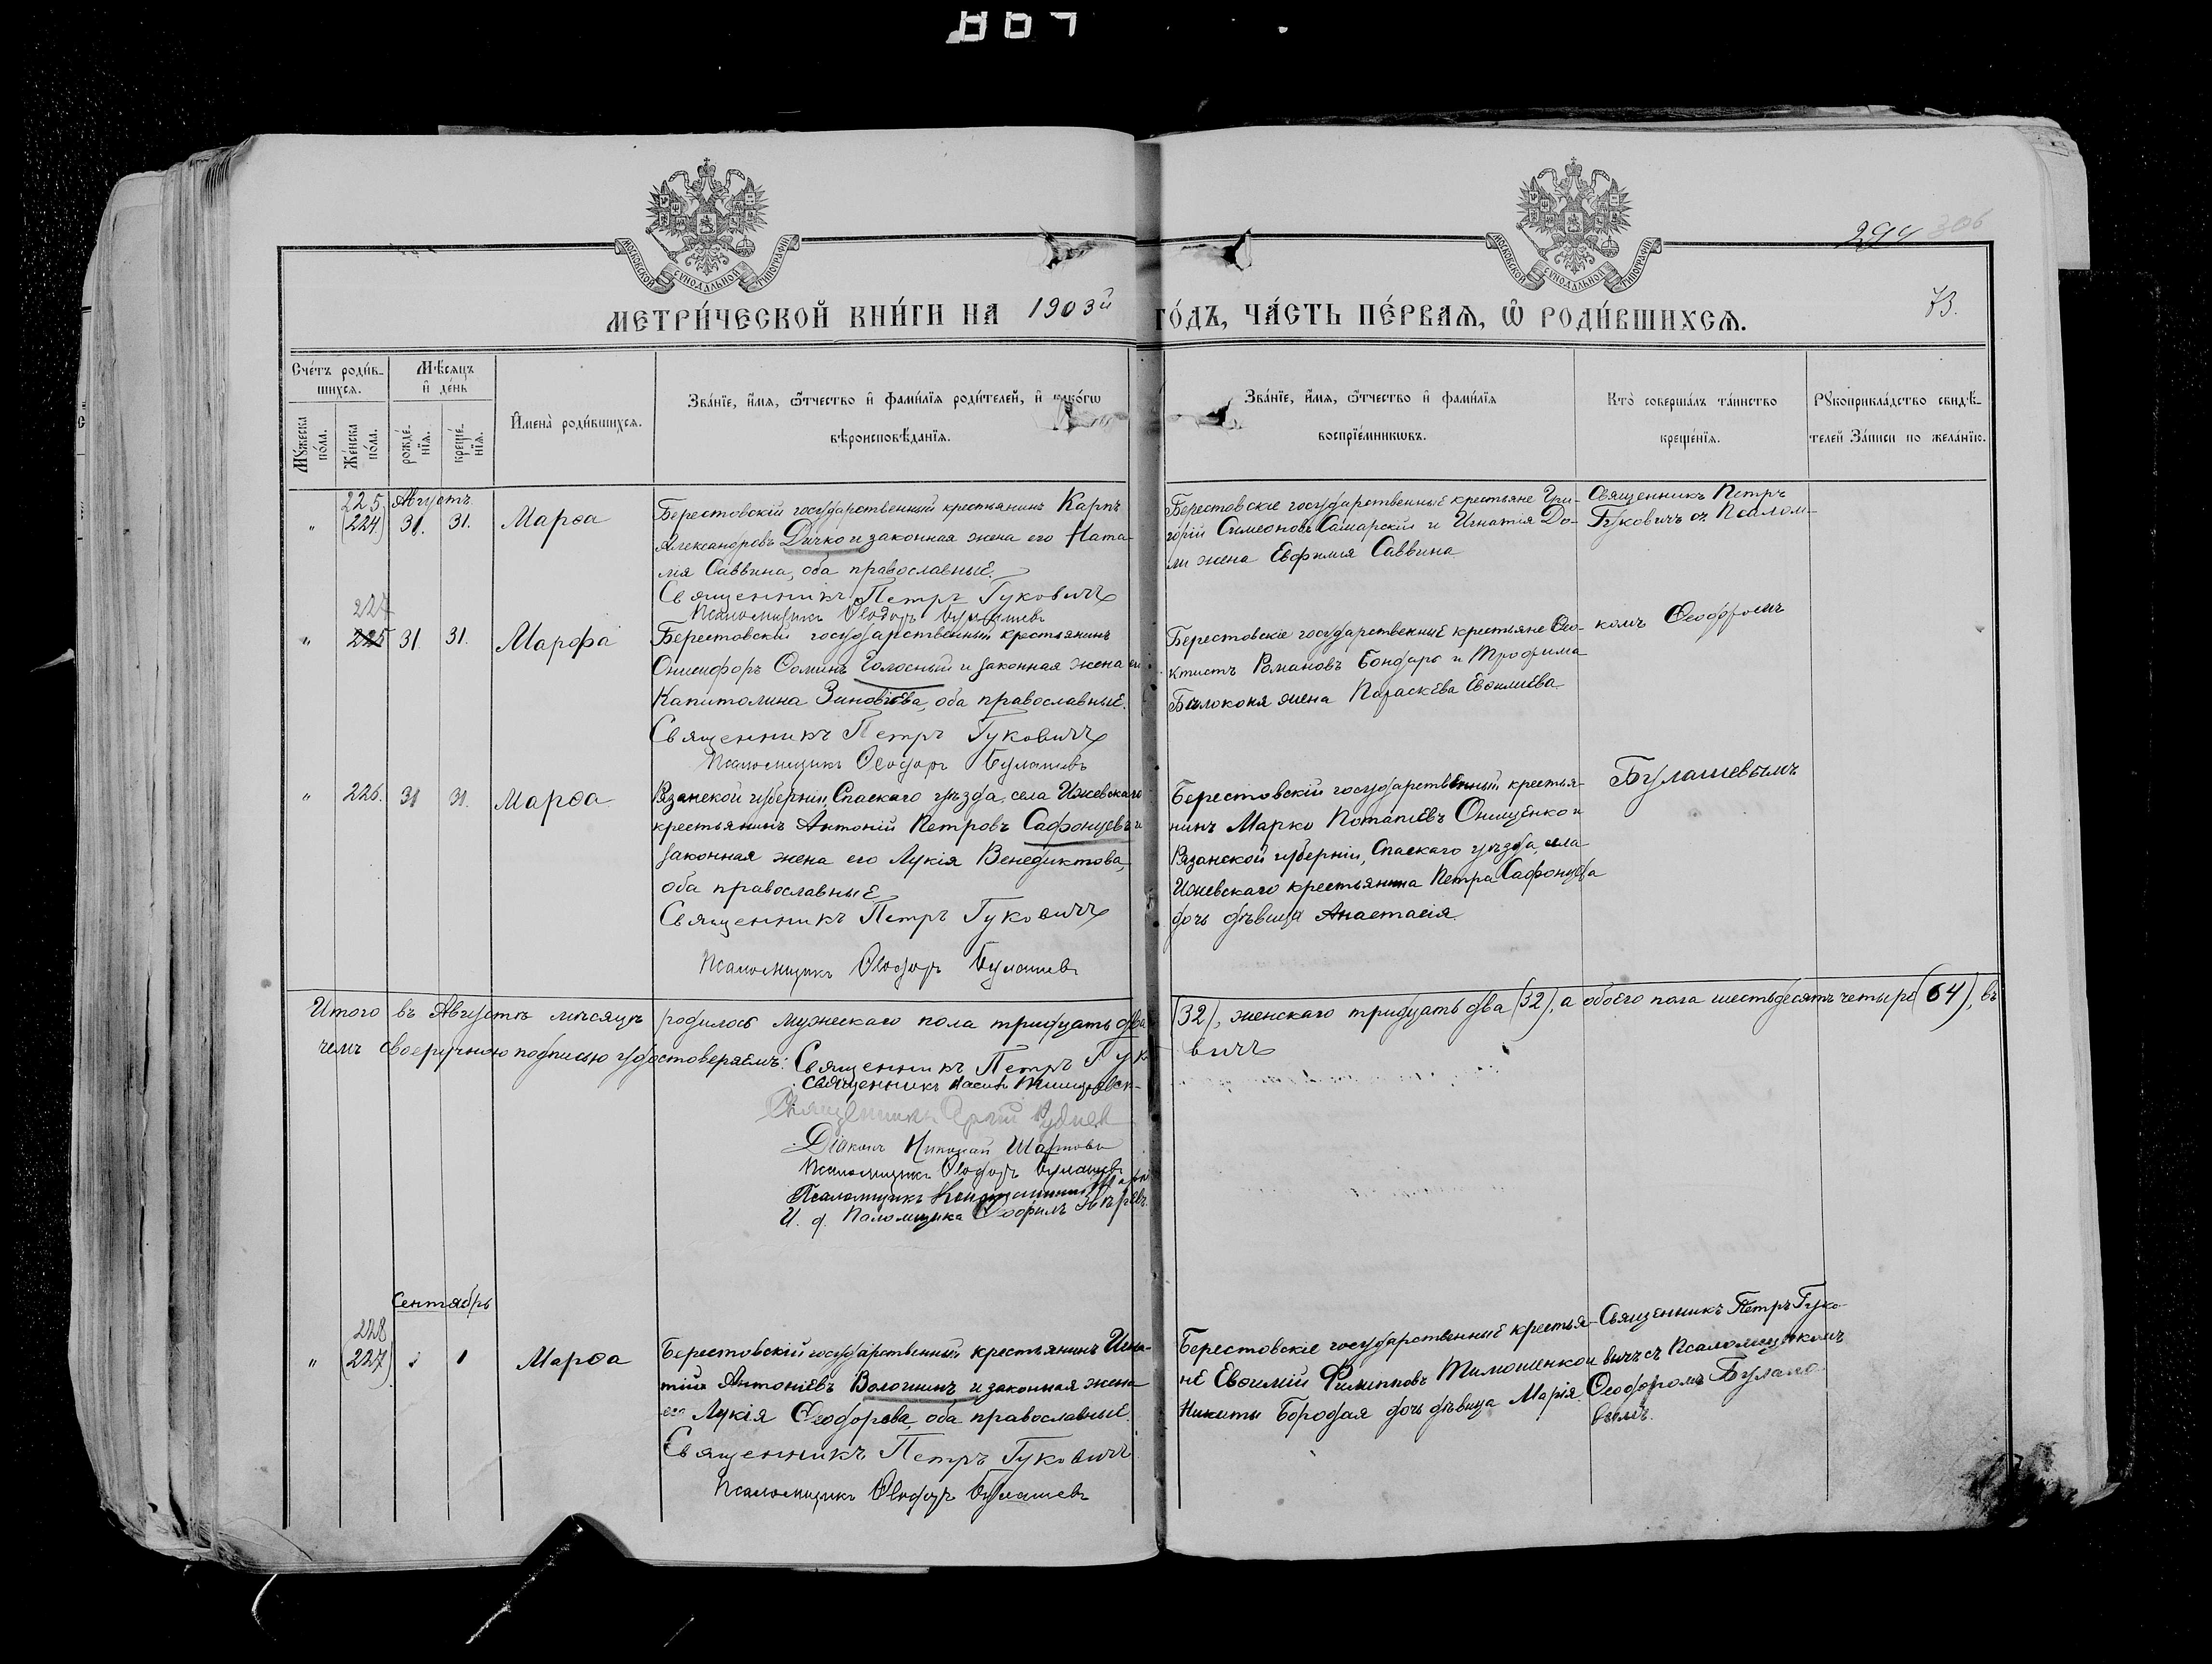 МОСКОВСКОЙ СѴНОДАЛЬНОЙ ТИПОГРАФІИ
МОСКОВСКОЙ СѴНОДАЛЬНОЙ ТИПОГРАФІИ
294 306
МЕТРИ́ЧЕСКОЙ КНИ́ГИ НА 1903й ГО́ДЪ, ЧА́СТЬ ПЕ́РВАѦ, Ѡ҆ РОДИ́ВШИХСѦ.
73.
Сче́тъ роди́в-
шихсѧ.
Мѣ́сѧцъ
и҆ де́нь
Мꙋ́жеска
по́ла.
Же́нска
по́ла.
рожде́-
нїѧ.
креще́-
нїѧ.
И҆мена̀ роди́вшихсѧ.
Зва́нїе, и҆́мѧ, ѻ҆́тчество и҆ фами́лїѧ роди́телей, и҆ како́гѡ
вѣроисповѣ́данїѧ.
Зва́нїе, и҆́мѧ, ѻ҆́тчество и҆ фами́лїѧ
воспрїе́мникѡвъ.
Кто̀ соверша́лъ та́инство
креще́нїѧ.
Рꙋкоприкла́дство свидѣ́-
телей За́писи по жела́нїю.
225 Августъ
" (224) 31. 31. Марѳа
Берестовскій государственный крестьянинъ Карпъ
Александровъ Дичко и законная жена его Ната-
лія Саввина, оба православные.
Священникъ Петръ Гуковичъ
Псаломщикъ Ѳеодоръ Булашевъ
Берестовскіе государственные крестьяне Гри-
горій Симеоновъ Самарскій и Игнатія До-
ли жена Евфимія Саввина
Священникъ Петръ
Гуковичъ съ Псалом-
227
" 225 31 31. Марфа
Берестовскій государственный крестьянинъ
Онисифоръ Ѳоминъ Голосный и законная жена его
Капитолина Зиновіева, оба православные.
Священникъ Петръ Гуковичъ
Псаломщикъ Ѳеодоръ Булашевъ
Берестовскіе государственные крестьяне Ѳео-
ктистъ Романовъ Бондарь и Трофима
Билоконя жена Параскева Евѳиміева
комъ Ѳеодоромъ
" 226. 31 31. Марѳа
Рязанской губерніи, Спаскаго уѣзда, села Ижевскаго
крестьянинъ Антоній Петровъ Сафонцевъ и
законная жена его Лукія Венедиктова,
оба православные
Священникъ Петръ Гуковичъ
Псаломщикъ Ѳеодоръ Булашевъ
Берестовскій государственный крестья-
нинъ Марко Потапіевъ Онищенко и
Рязанской губерніи, Спаскаго уѣзда, села
Ижевскаго крестьянина Петра Сафонцева
дочь дѣвица Анастасія
Булашевымъ
Итого въ Августѣ мѣсяцѣ родилось мужескаго пола тридцать два (32), женскаго тридцать два (32), а обоего пола шестьдесятъ четыре (64), въ
чемъ своеручною подписью удостоверяемъ: Священникъ Петръ Гуковичъ
Священникъ
Священникъ
Діаконъ Николай
Псаломщикъ Ѳеодоръ Булашевъ
Псаломщикъ
И. д. Псаломщика Ѳеофилъ
Сентябрь
228
" (227) 1 1 Марѳа
Берестовскій государственный крестьянинъ Игна-
тій Антоніевъ Волошинъ и законная жена
его Лукія Ѳеодорова, оба православные.
Священникъ Петръ Гуковичъ
Псаломщикъ Ѳеодоръ Булашевъ
Берестовскіе государственные крестья-
не Евѳимій Филипповъ Тимошенко и
Никиты Бородая дочь дѣвица Марія
Священникъ Петръ Гуко-
вичъ съ Псаломщикомъ
Ѳеодоромъ Булаше-
вымъ.